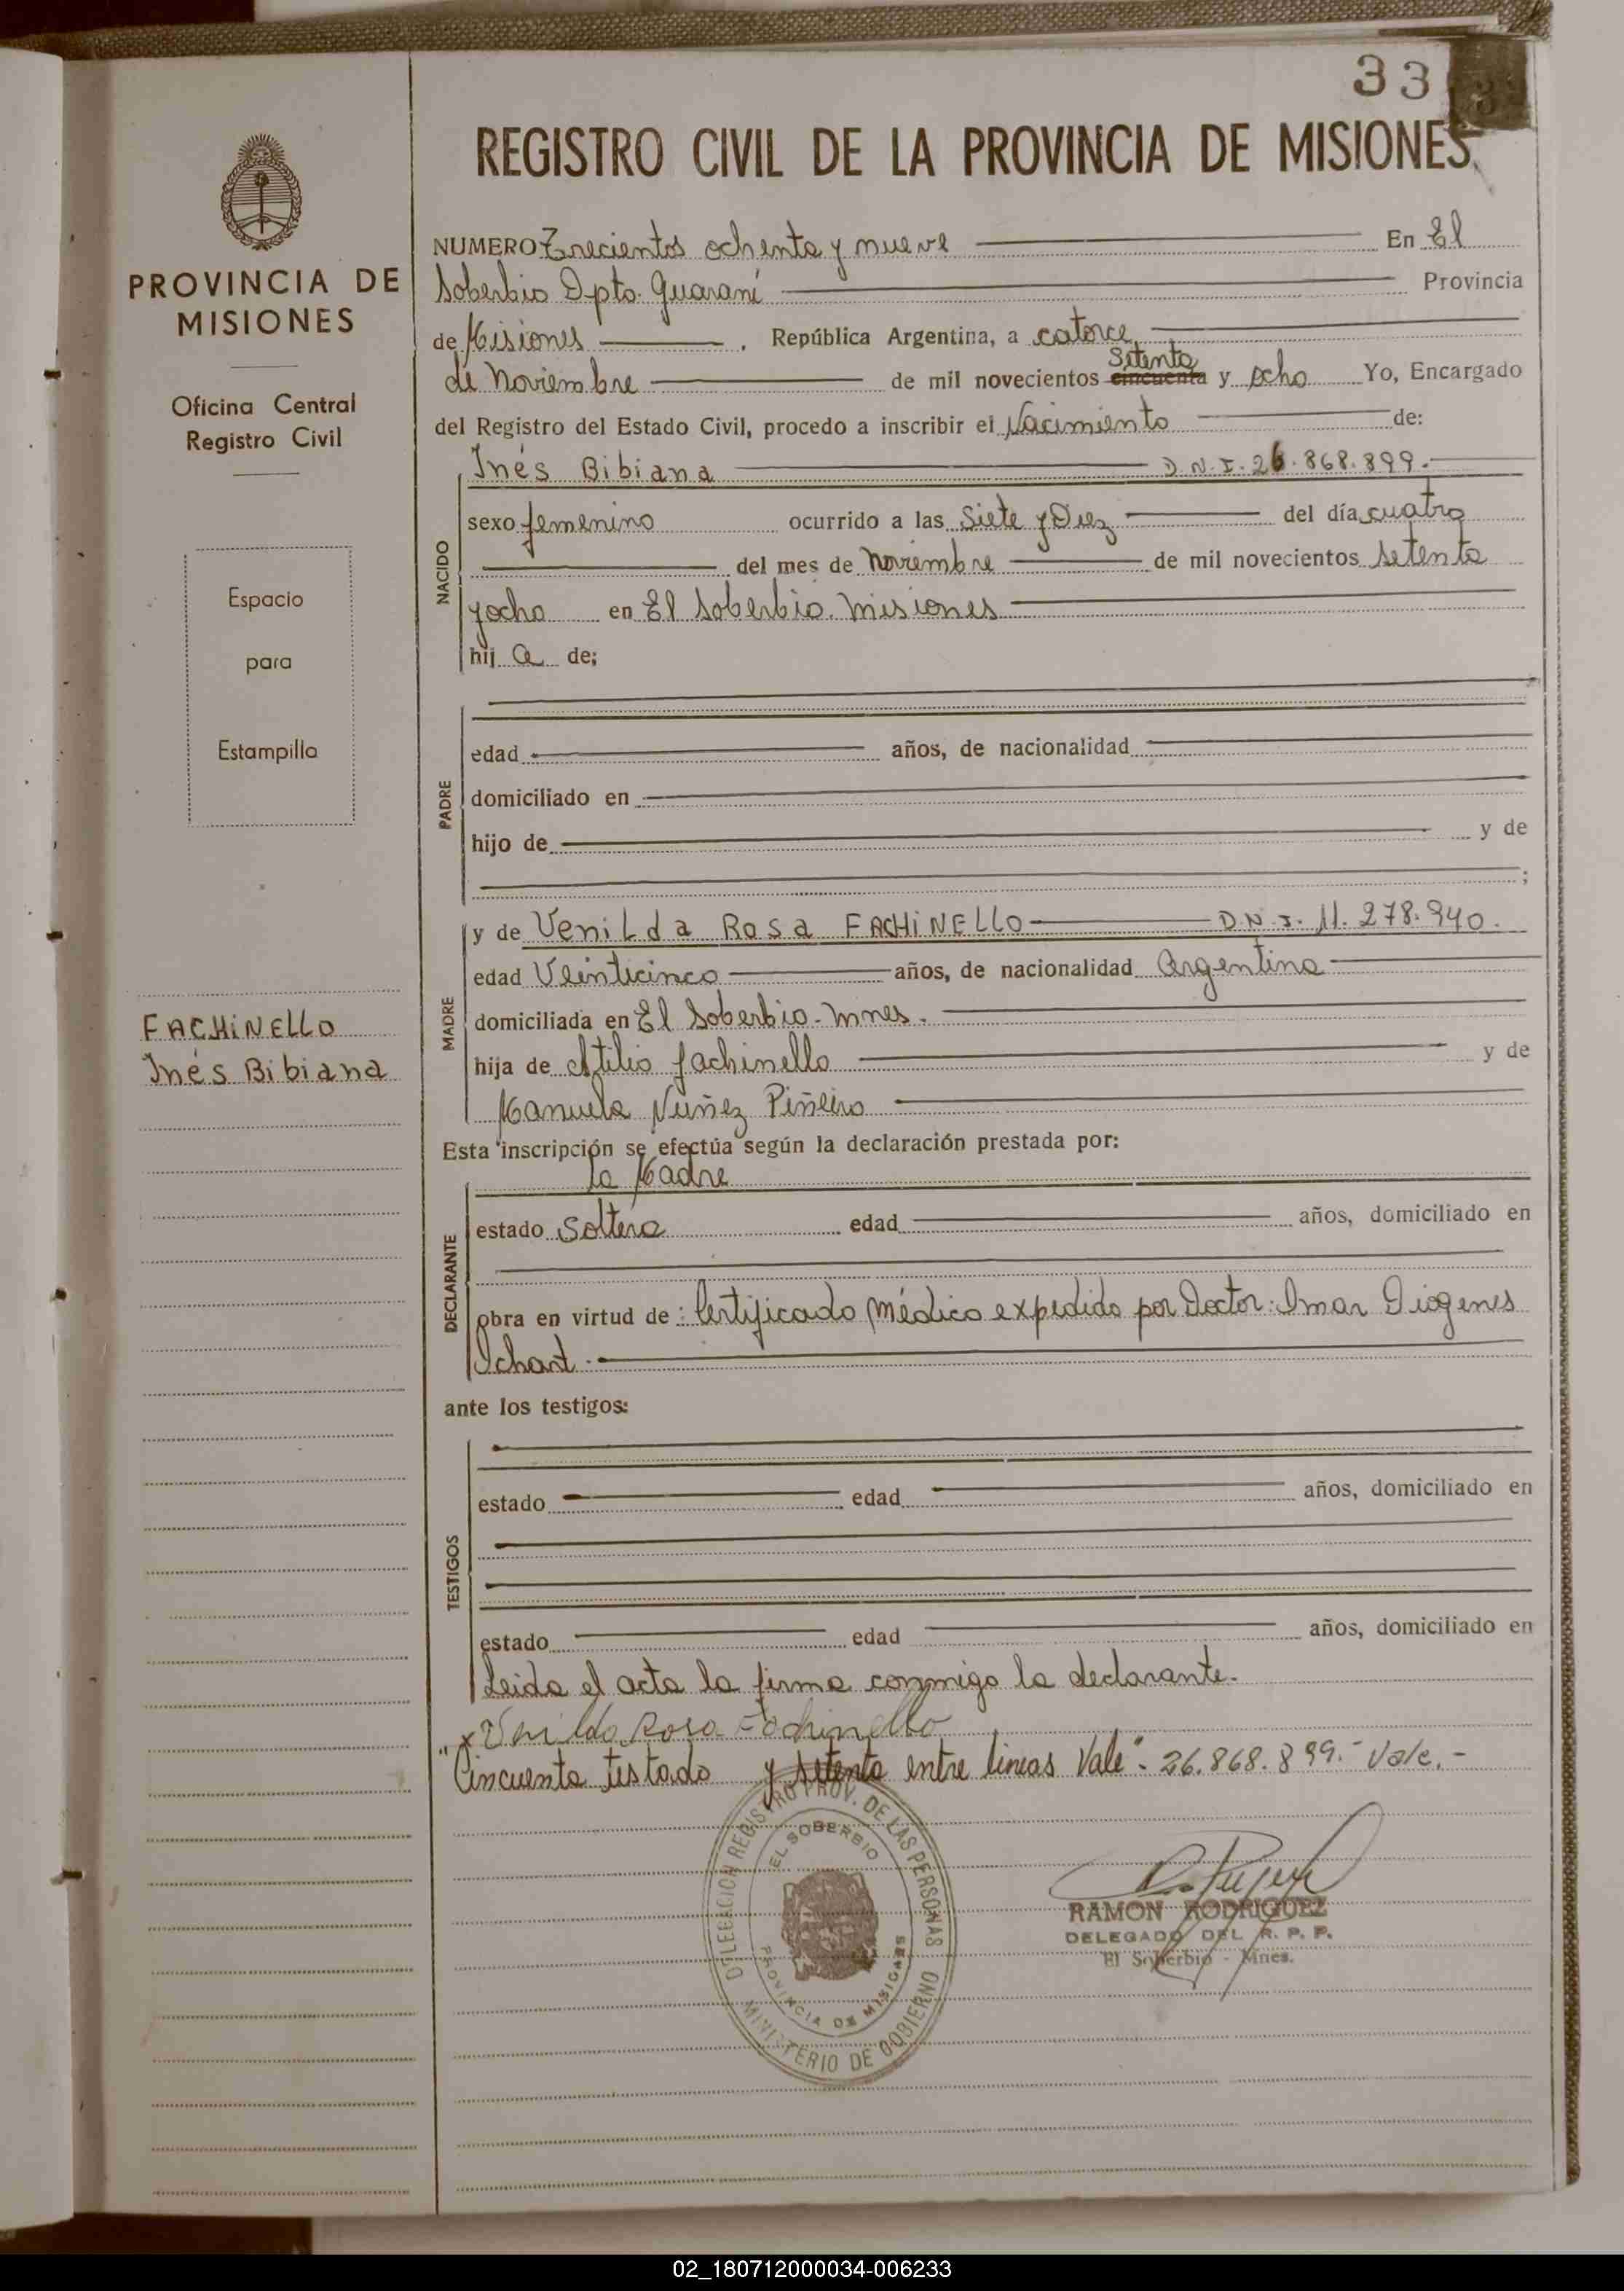 33
REGISTRO CIVIL DE LA PROVINCIA DE MISIONES
PROVINCIA DE
MISIONES
Oficina Central
Registro Civil
Espacio
para
Estampilla
FACHINELLO
Inés Bibiana
NUMERO Trecientos ochenta y nueve En El
Soberbio Dpto. Guaraní Provincia
de Misiones, República Argentina, a catorce
Setenta
de Noviembre de mil novecientos cincuenta y ocho Yo, Encargado
del Registro del Estado Civil, procedo a inscribir el Nacimiento de:
Inés Bibiana D.N.I. 26.868.899.
NACIDO
sexo femenino ocurrido a las Siete y Diez del día cuatro
del mes de Noviembre de mil novecientos setenta
y ocho en El Soberbio. Misiones
hij a de;
PADRE
edad años, de nacionalidad
domiciliado en
hijo de y de
;
MADRE
y de Venilda Rosa FACHINELLO D.N.I. 11.278.940.
edad Veinticinco años, de nacionalidad Argentina
domiciliada en El Soberbio - Mnes.
hija de Atilio Fachinello y de
Manuela Nuñez Piñeiro
Esta inscripción se efectúa según la declaración prestada por:
la Madre
DECLARANTE
estado Soltera edad años, domiciliado en
obra en virtud de: Certificado Médico expedido por Doctor: Omar Diogenes
Ichart.
ante los testigos:
TESTIGOS
estado edad años, domiciliado en
estado edad años, domiciliado en
Leida el acta la firma conmigo la declarante.
x Venilda Rosa Fachinello
"Cincuenta testado y setenta entre lineas Vale". 26.868.899.- Vale.-
DELEGACION REGISTRO PROV. DE LAS PERSONAS
EL SOBERBIO
PROVINCIA DE MISIONES
MINISTERIO DE GOBIERNO
RAMON RODRIGUEZ
DELEGADO DEL R. P. P.
El Soberbio - Mnes.
02_180712000034-006233